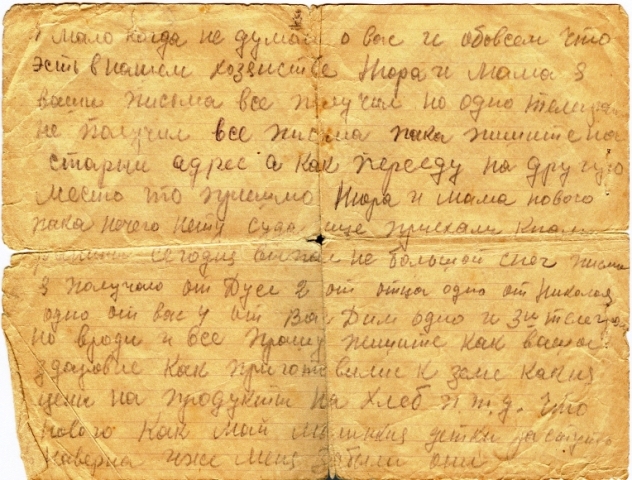 мало когда не думаю о вас и обовсем что
эсть в нашем хозяистве Нюра и Мама я
ваши письма все получил но одно
не получил все письма пака пишите на
старый адрес а как перееду на другую
место то пришлю Нюра и Мама нового
пака нечего нету суда еще приехали
сегодня выпал не большой снег
я получаю от Дуси 2 от отца одно от Николая
одно от вас у от Дим одно и 3
но вроди и все прошу пишите как ваше
здаровие как приготовились к земе какия
цены на продукты на хлеб и т.д. что
нового как маи детки
наверна уже меня забыли они